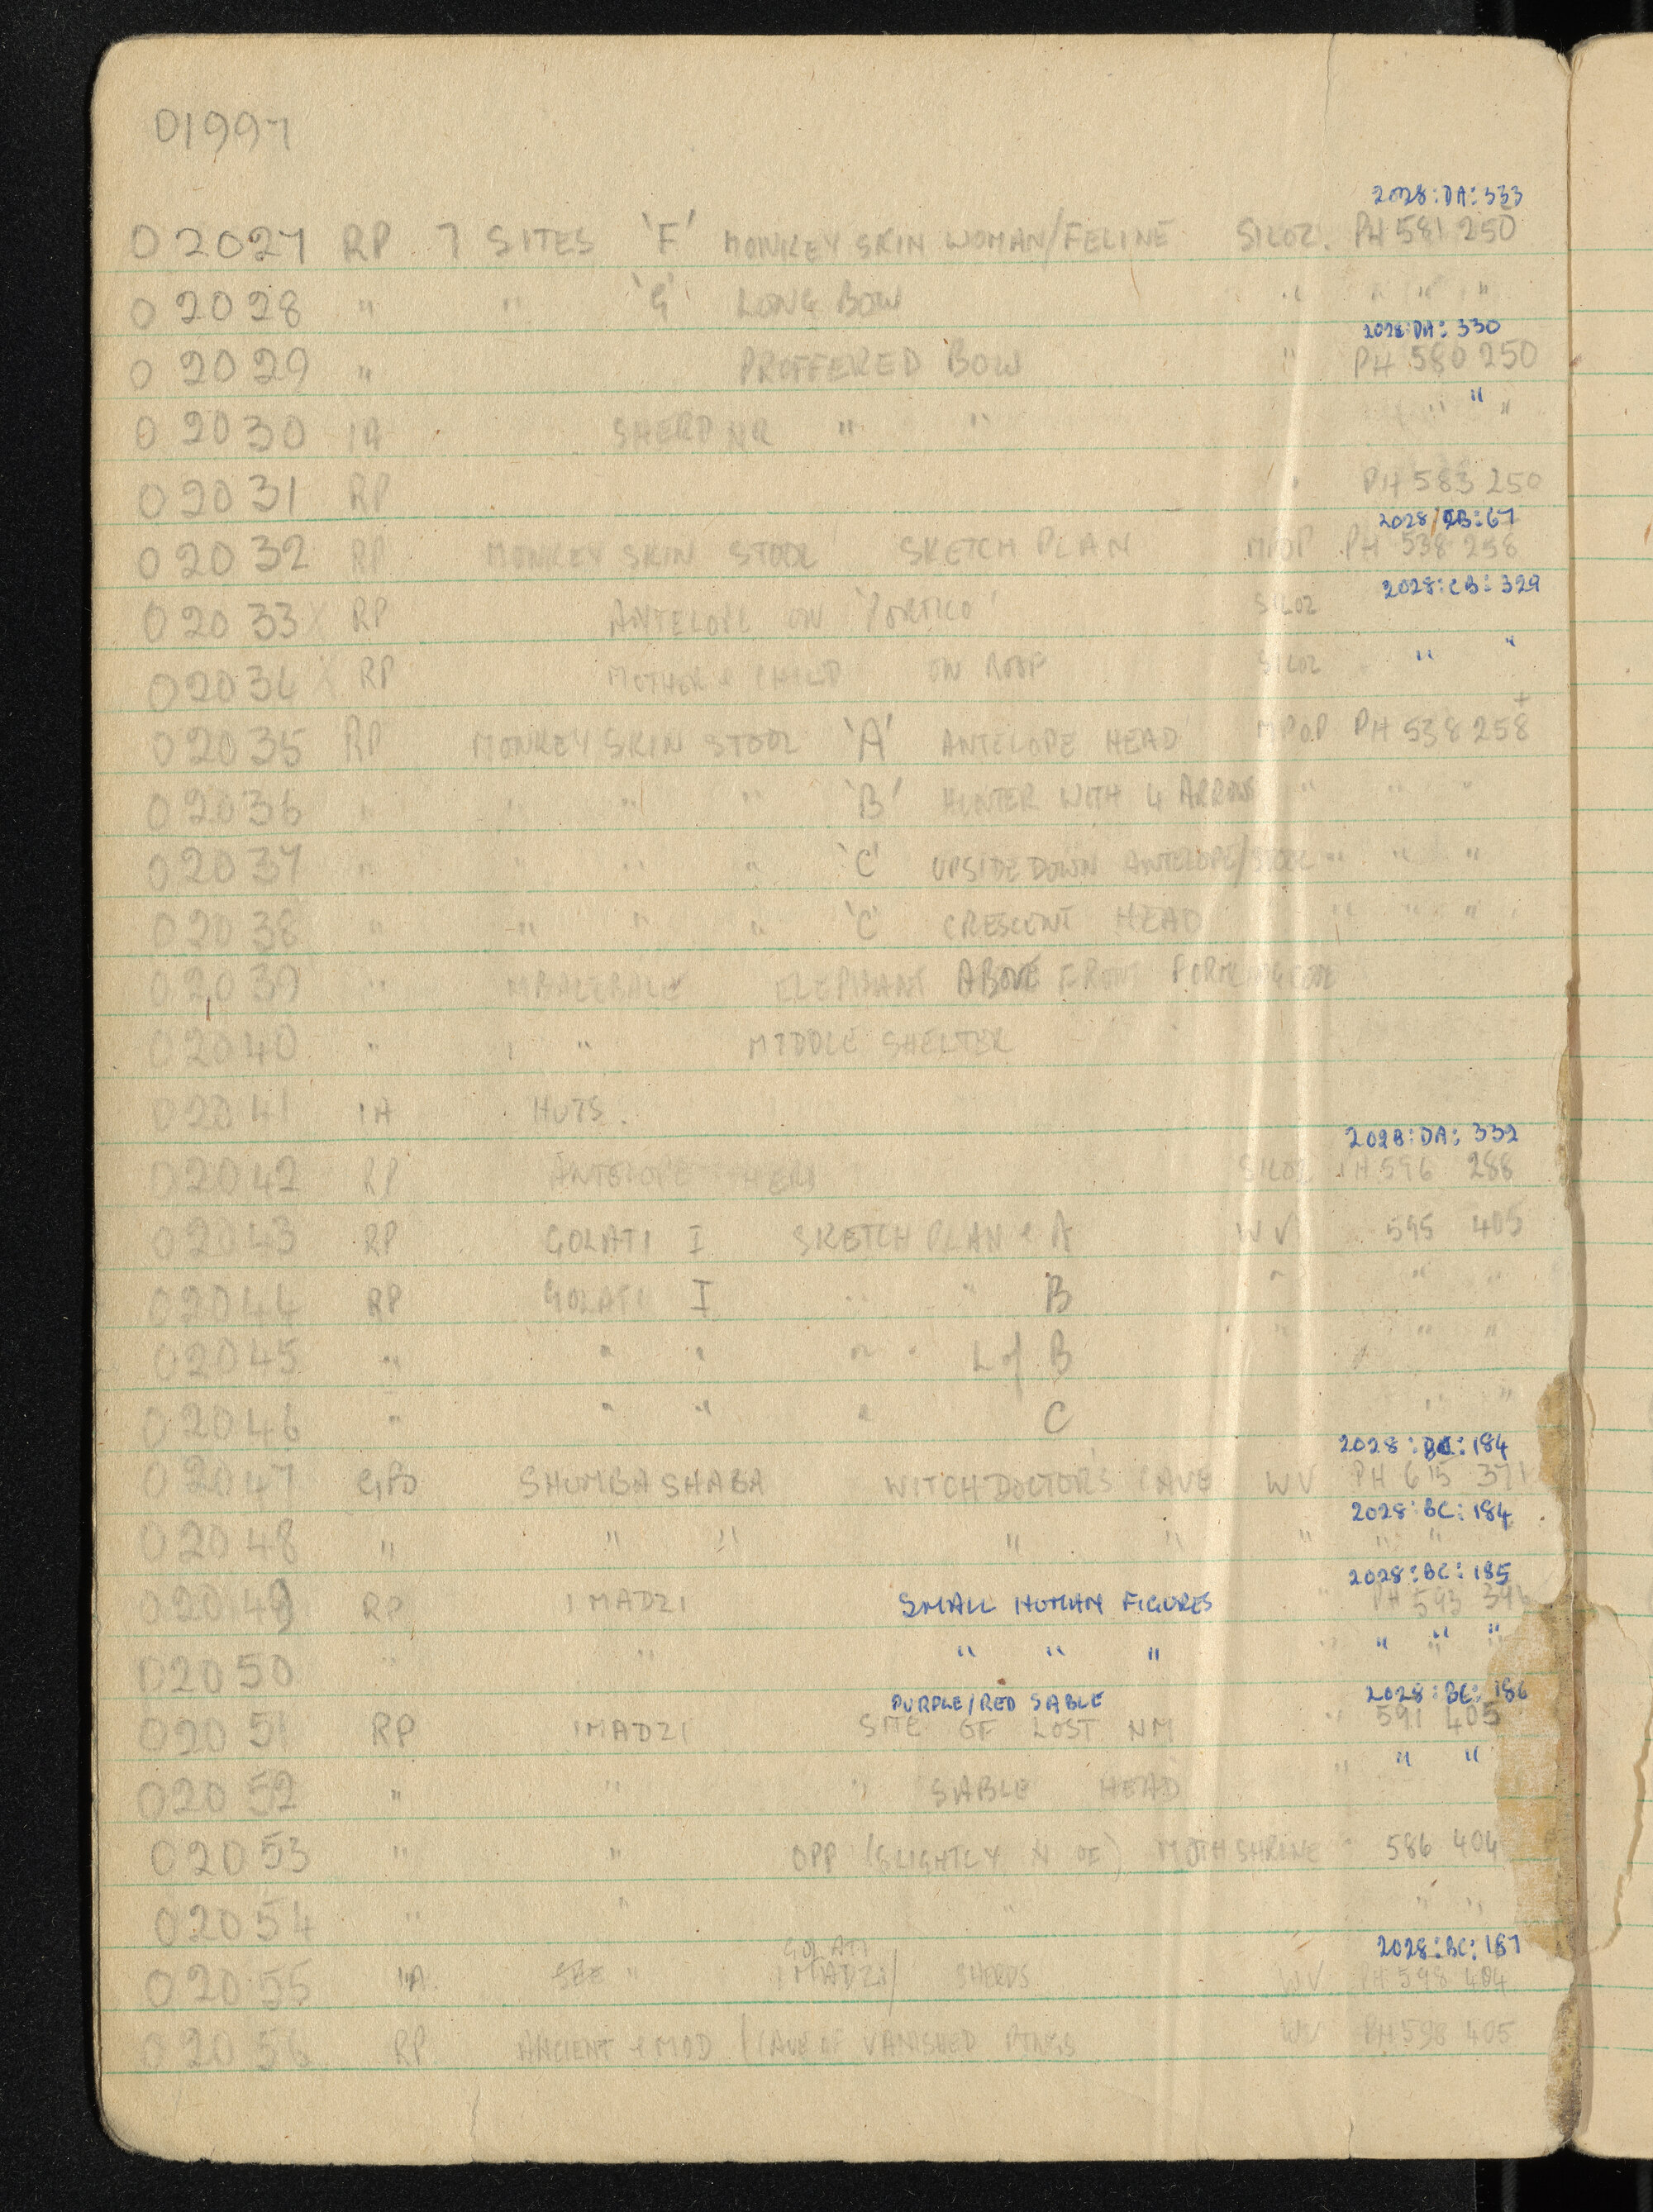 01997
2028:DA:333
02027 RP 7 SITES 'F' MONKEY SKIN WOMAN/FELINE SILOZ. PH 581 250
02028 " " 'G' LONG BOW " " " "
2028:DA:330
02029 " PROFFERED BOW " PH 580 250
02030 IA SHERD NR " " " " "
02031 RP PH 583 250
2028/CB:67
02032 RP MONKEY SKIN STOOL SKETCH PLAN MPOP PH 538 258
2028:CB:329
02033 X RP ANTELOPE ON 'PORTICO' SILOZ
02034 X RP MOTHER & CHILD ON ROOF SILOZ " "
02035 RP MONKEY SKIN STOOL 'A' ANTELOPE HEAD MPOP PH 538 258
02036 " " " " 'B' HUNTER WITH 4 ARROWS " " "
02037 " " " " 'C' UPSIDEDOWN ANTELOPE/STOOL " " "
02038 " " " " 'C' CRESCENT HEAD " " "
02039 " MBALEBALE ELEPHANT ABOVE FRONT
02040 " " MIDDLE SHELTER
02041 IA HUTS.
2028:DA:332
02042 RP ANTELOPE HERD SILOZ PH 596 288
02043 RP GOLATI I SKETCH PLAN & A WV 595 405
02044 RP GOLATI I " " B " " "
02045 " " " " " L of B " " "
02046 " " " " C " "
2028:BC:184
02047 RP SHUMBASHABA WITCHDOCTORS CAVE WV PH 615 371
2028:BC:184
02048 " " " " " " " "
2028:BC:185
02049 RP IMADZI SMALL HUMAN FIGURES " PH 593 396
02050 " " " " " " " " "
PURPLE/RED SABLE 2028:BC:186
02051 RP IMADZI SITE OF LOST NM " 591 405
02052 " " " SABLE HEAD " " "
02053 " " OPP (SLIGHTLY N OF) MOTH SHRINE " 586 404
02054 " " " " "
GOLATI 2028:BC:187
02055 IA " IMADZI/ SHERDS WV PH 598 404
02056 RP ANCIENT & MOD / CAVE OF VANISHED WV PH 598 405